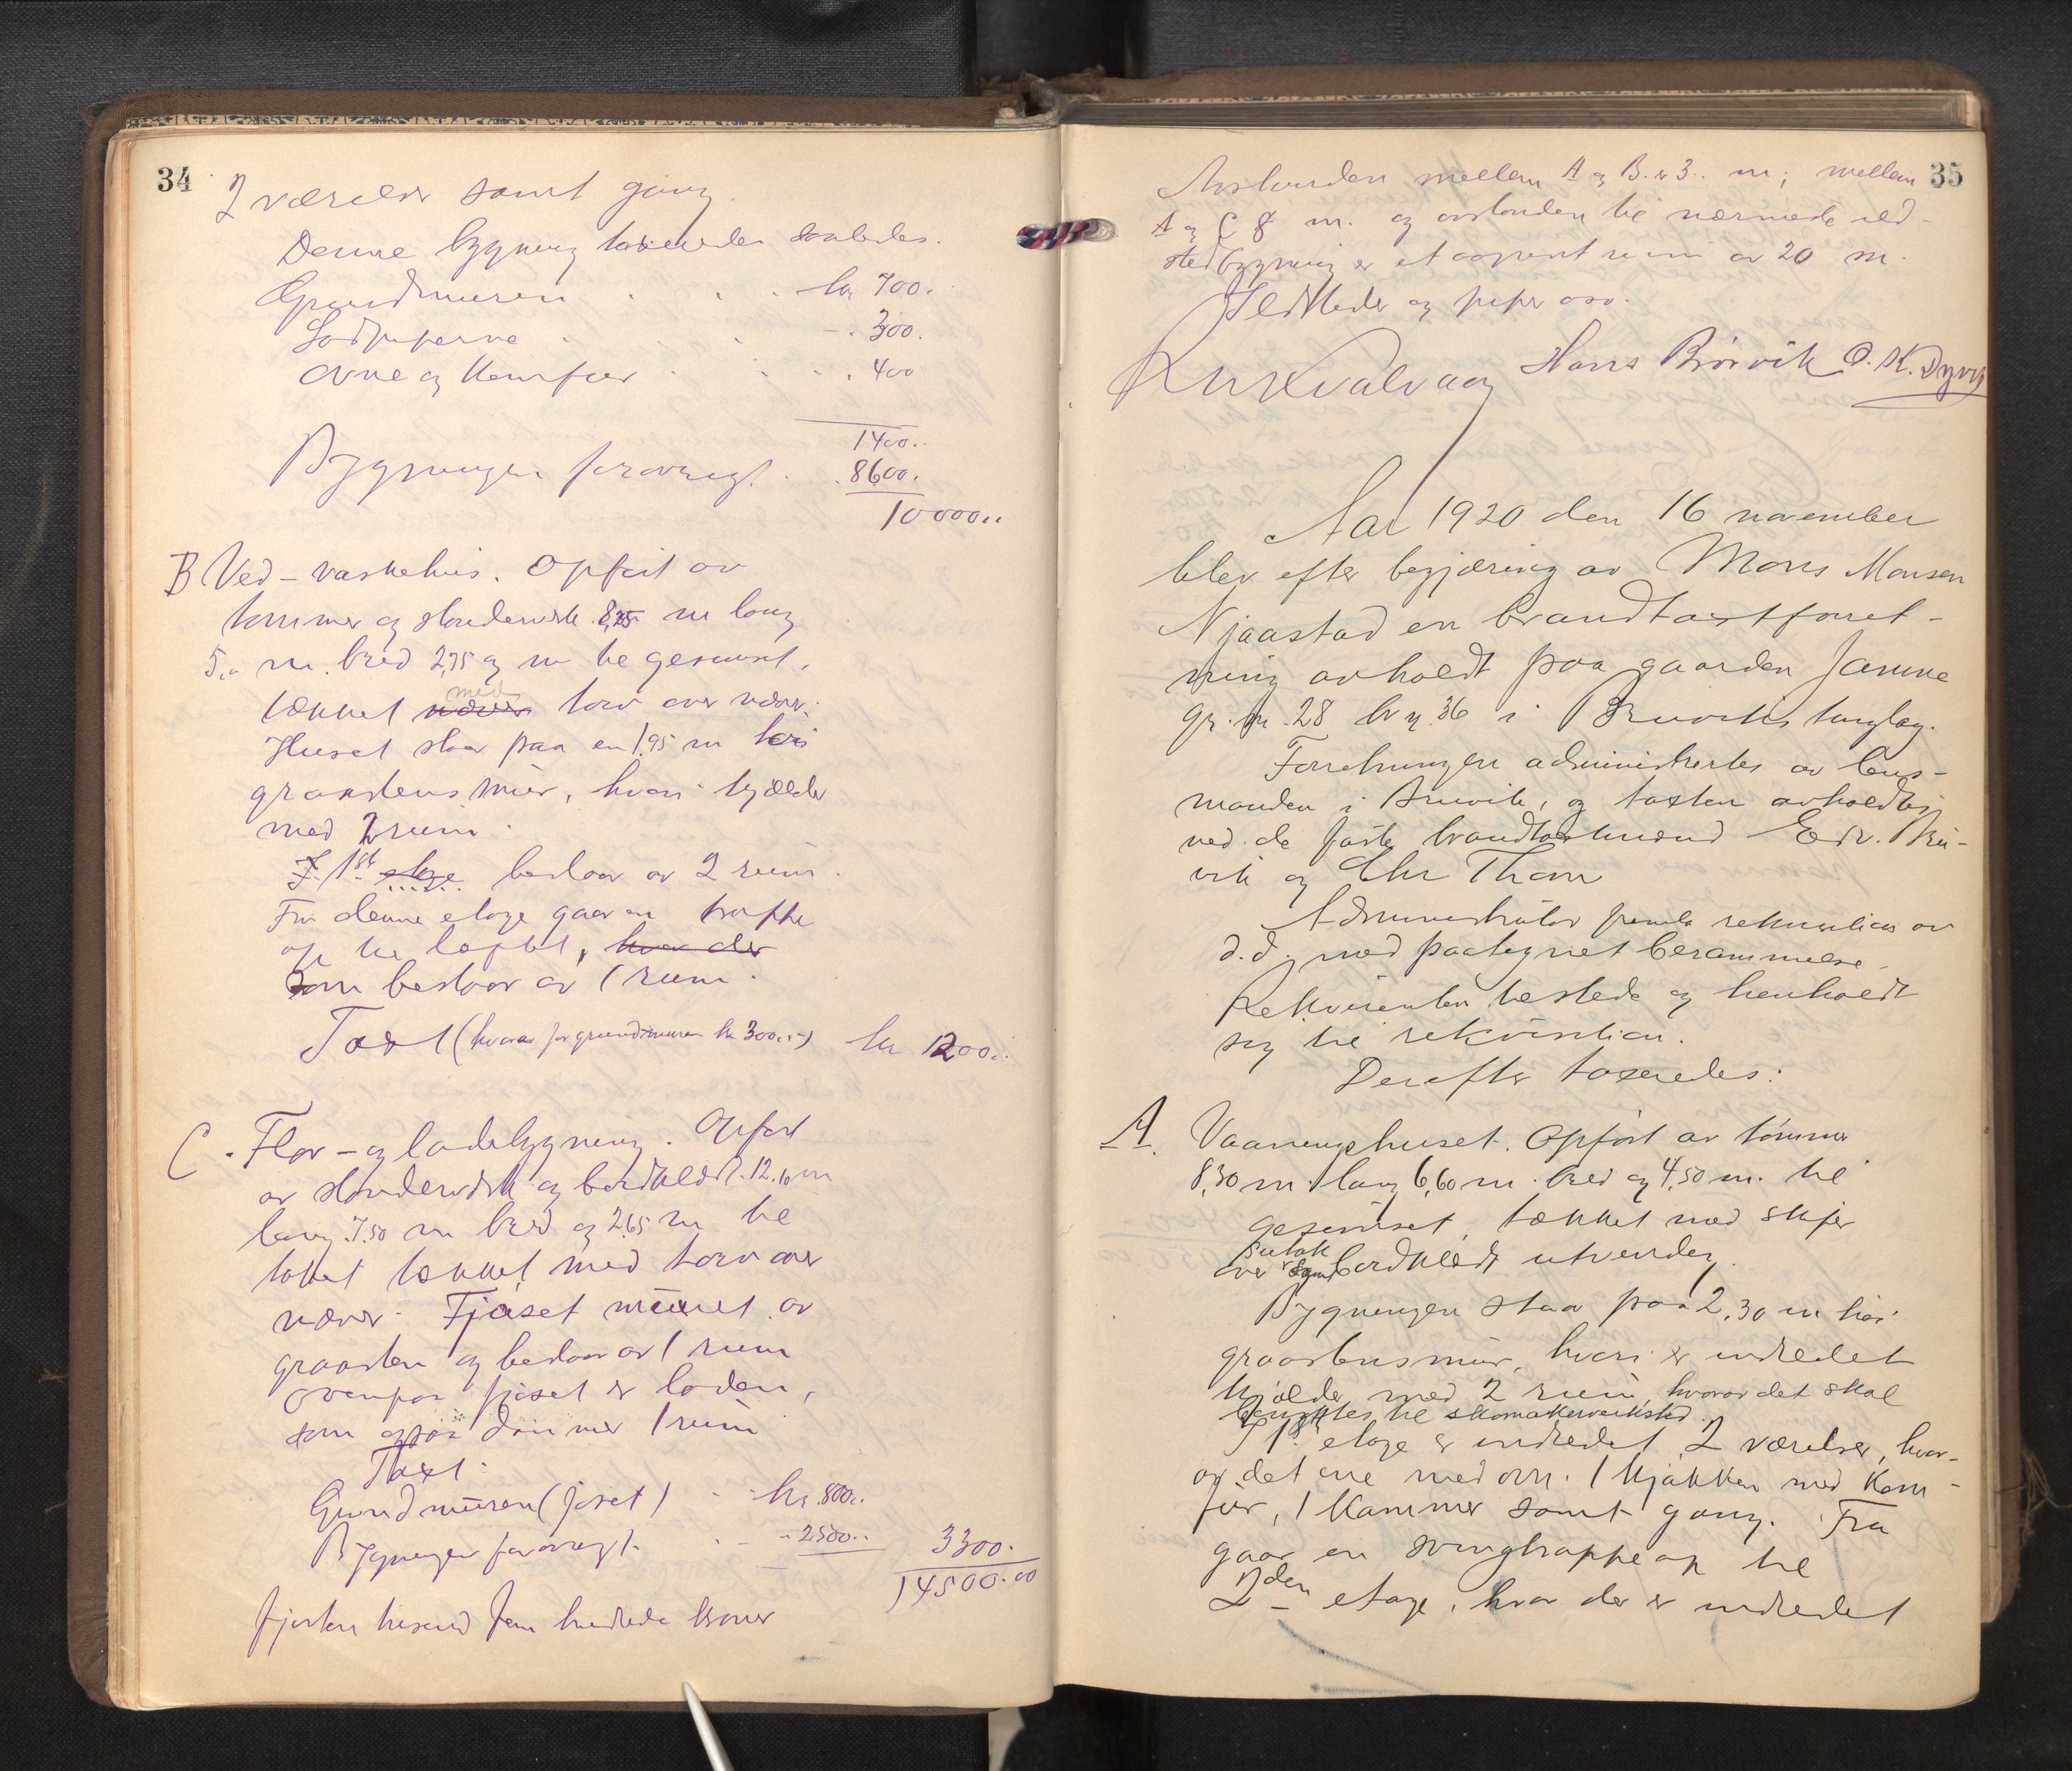 34
2 værelser samt gang
Denne bygning taxeredes saaledes.
Grundmuren . . . kr 700.
Lodpiperne . . - . 300.
Ovne og komfur . . . . 400
1400..
Bygningen forøvrigt . . 8600.
10000..
B Ved - vaskehus. Opført av
tømmer og stenderverk 8,25 m lang
5,0 m. bred 2,75 og m til gesimset.
tækket næver med torv over næver.
Huset staar paa en 1.95 m høi
graastens mur, hvori kjælder
med 2 rum.
I. 1ste etage bestaar av 2 rum.
Fra denne etage gaar en trappe
op til loftet, hvor der
som bestaar av 1 rum.
Taxt (hvorav for grundmuren kr 300..-) kr 1200..
C. Flor - og ladebygning. Opført
av stenderverk og bordklædt. 12.10 m
lang 7.50 m bred og 2,65 m til
taket tækket med torv over
næver. Fjøset muret av
graasten og bestaar av 1 rum
Ovenpaa fjøset er laden,
som ogsaa danner 1 rum
Taxt:
Grundmuren (fjøset) . - kr. 800..
Bygningen forøvrigt . - - 2500.. 3300.
14500.00
fjorten tusend fem hundrede kroner
35
Avstanden mellem A og B. er 3.. m; mellem
A og C 8 m. og avstanden til nærmeste ild-
sted bygning er et aapent rum av 20 m.
Ildsteder og piper osv.
Kn Kvalvaag Hans Brørvik O. K. Dyvik
Aar 1920 den 16 november
blev efter begjæring av Mons Monsen
Njaastad en brandtaxtforret-
ning avholdt paa gaarden Jamne
gr. nr. 28 br. nr. 36 i Bruviks tinglag.
Forretningen administrertes av lens-
manden i Bruvik, og taxten avholdtes
ved de faste brandtaxtmænd Edv. Bru-
vik og Chr Thom
Administrator fremla rekvisition av
d.d. med paategnet berammelse.
Rekvirenten tilstede og henholdt
sig til rekvisition.
Derefter taxeredes:
A. Vaaningshuset. Opført av tømmer
8,30 m. lang 6,60 m. bred og 4,50 m. til
gesimset, tækket med skifer
over sutak bordklædt utvendig.
Bygningen staar paa 2,30 m høi
graastensmur, hvori er indredet
kjælder med 2 rum, hvorav det skal
benyttes til skomakerverksted.
I 1ste etage er indredet 2 værelser, hvor-
av det ene med ovn. 1 kjøkken med kom-
fur, 1 kammer samt gang. Fra
gaar en svingtrappe op til
2den etage, hvor der er indredet